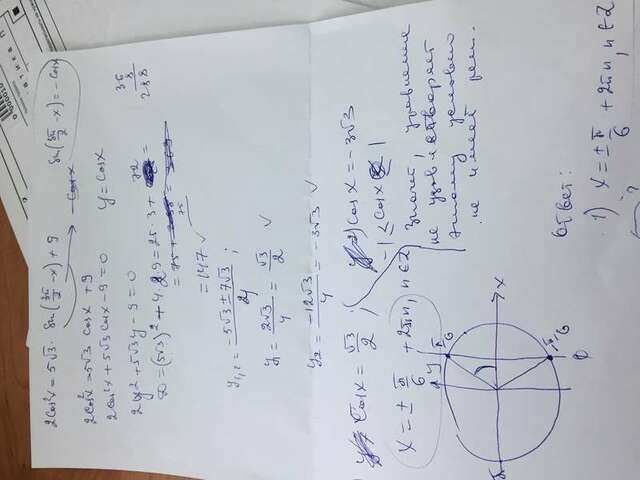 2Cos²x = 5√3 · Sin(3π/2 - x) + 9
Sin(3π/2 - x) = - Cosx
2Cos²x = 5√3 Cosx + 9
2Cos²x + 5√3 Cosx - 9 = 0
y = Cosx
2y² + 5√3y - 9 = 0
D = (5√3)² + 4·2·9 = 25·3 + 72 =
36
8
288
= 75 +
75
= 147 ✓
y1,2 = (-5√3 ± 7√3)/4 ;
y1 = 2√3/4 = √3/2 ✓
y2 = -12√3/4 = -3√3 ✓
Cosx = √3/2 ;
2) Cosx = -3√3
-1 ≤ Cosx ≤ 1
x = ± π/6 + 2πn, n ∈ Z
Значит, уравнение
не удовлетворяет
этому условию
не имеет реш.
y
π/6
x
-π/6
Ответ:
1) x = ± π/6 + 2πn, n ∈ Z